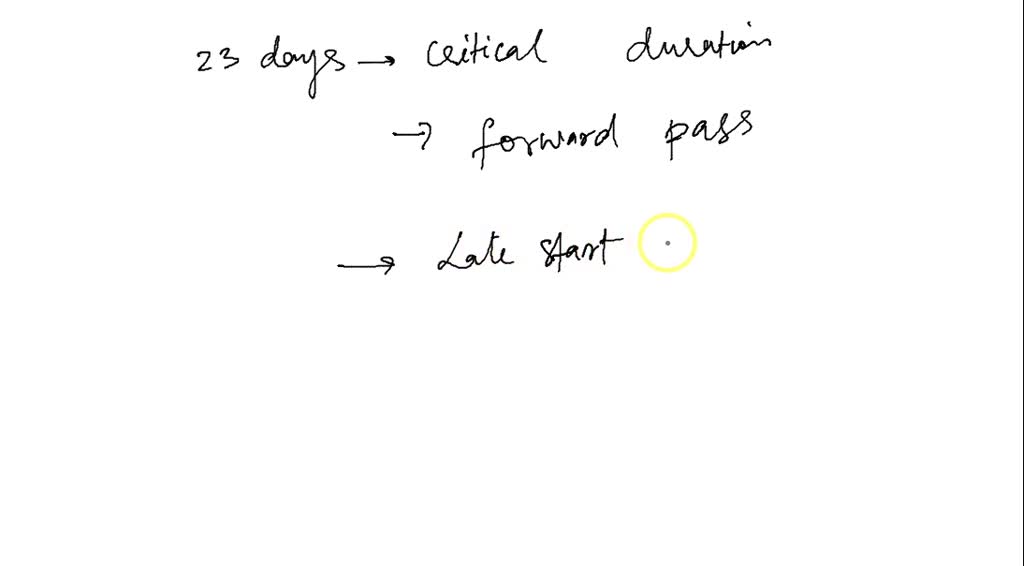 23 days → critical duration
→ forward pass
→ Late start